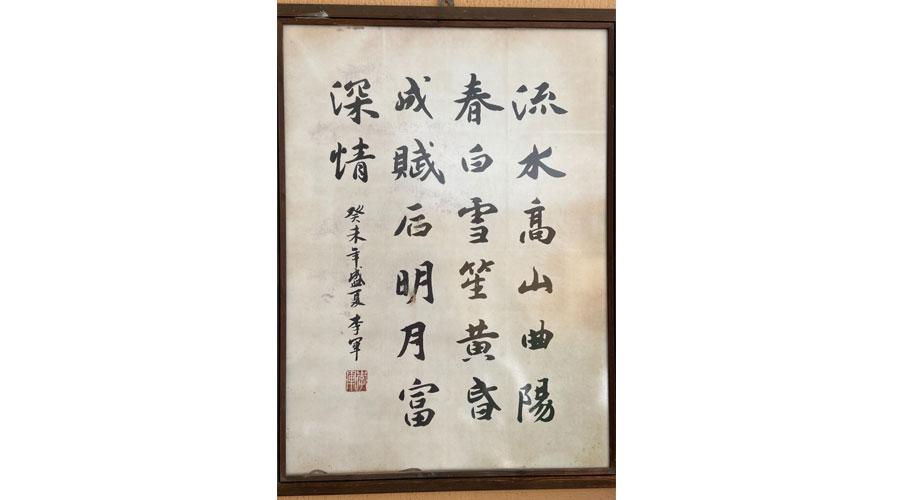 流水高山曲陽
春白雪笙黄昏
成賦后明月富
深情
癸未年盛夏 李軍
李軍